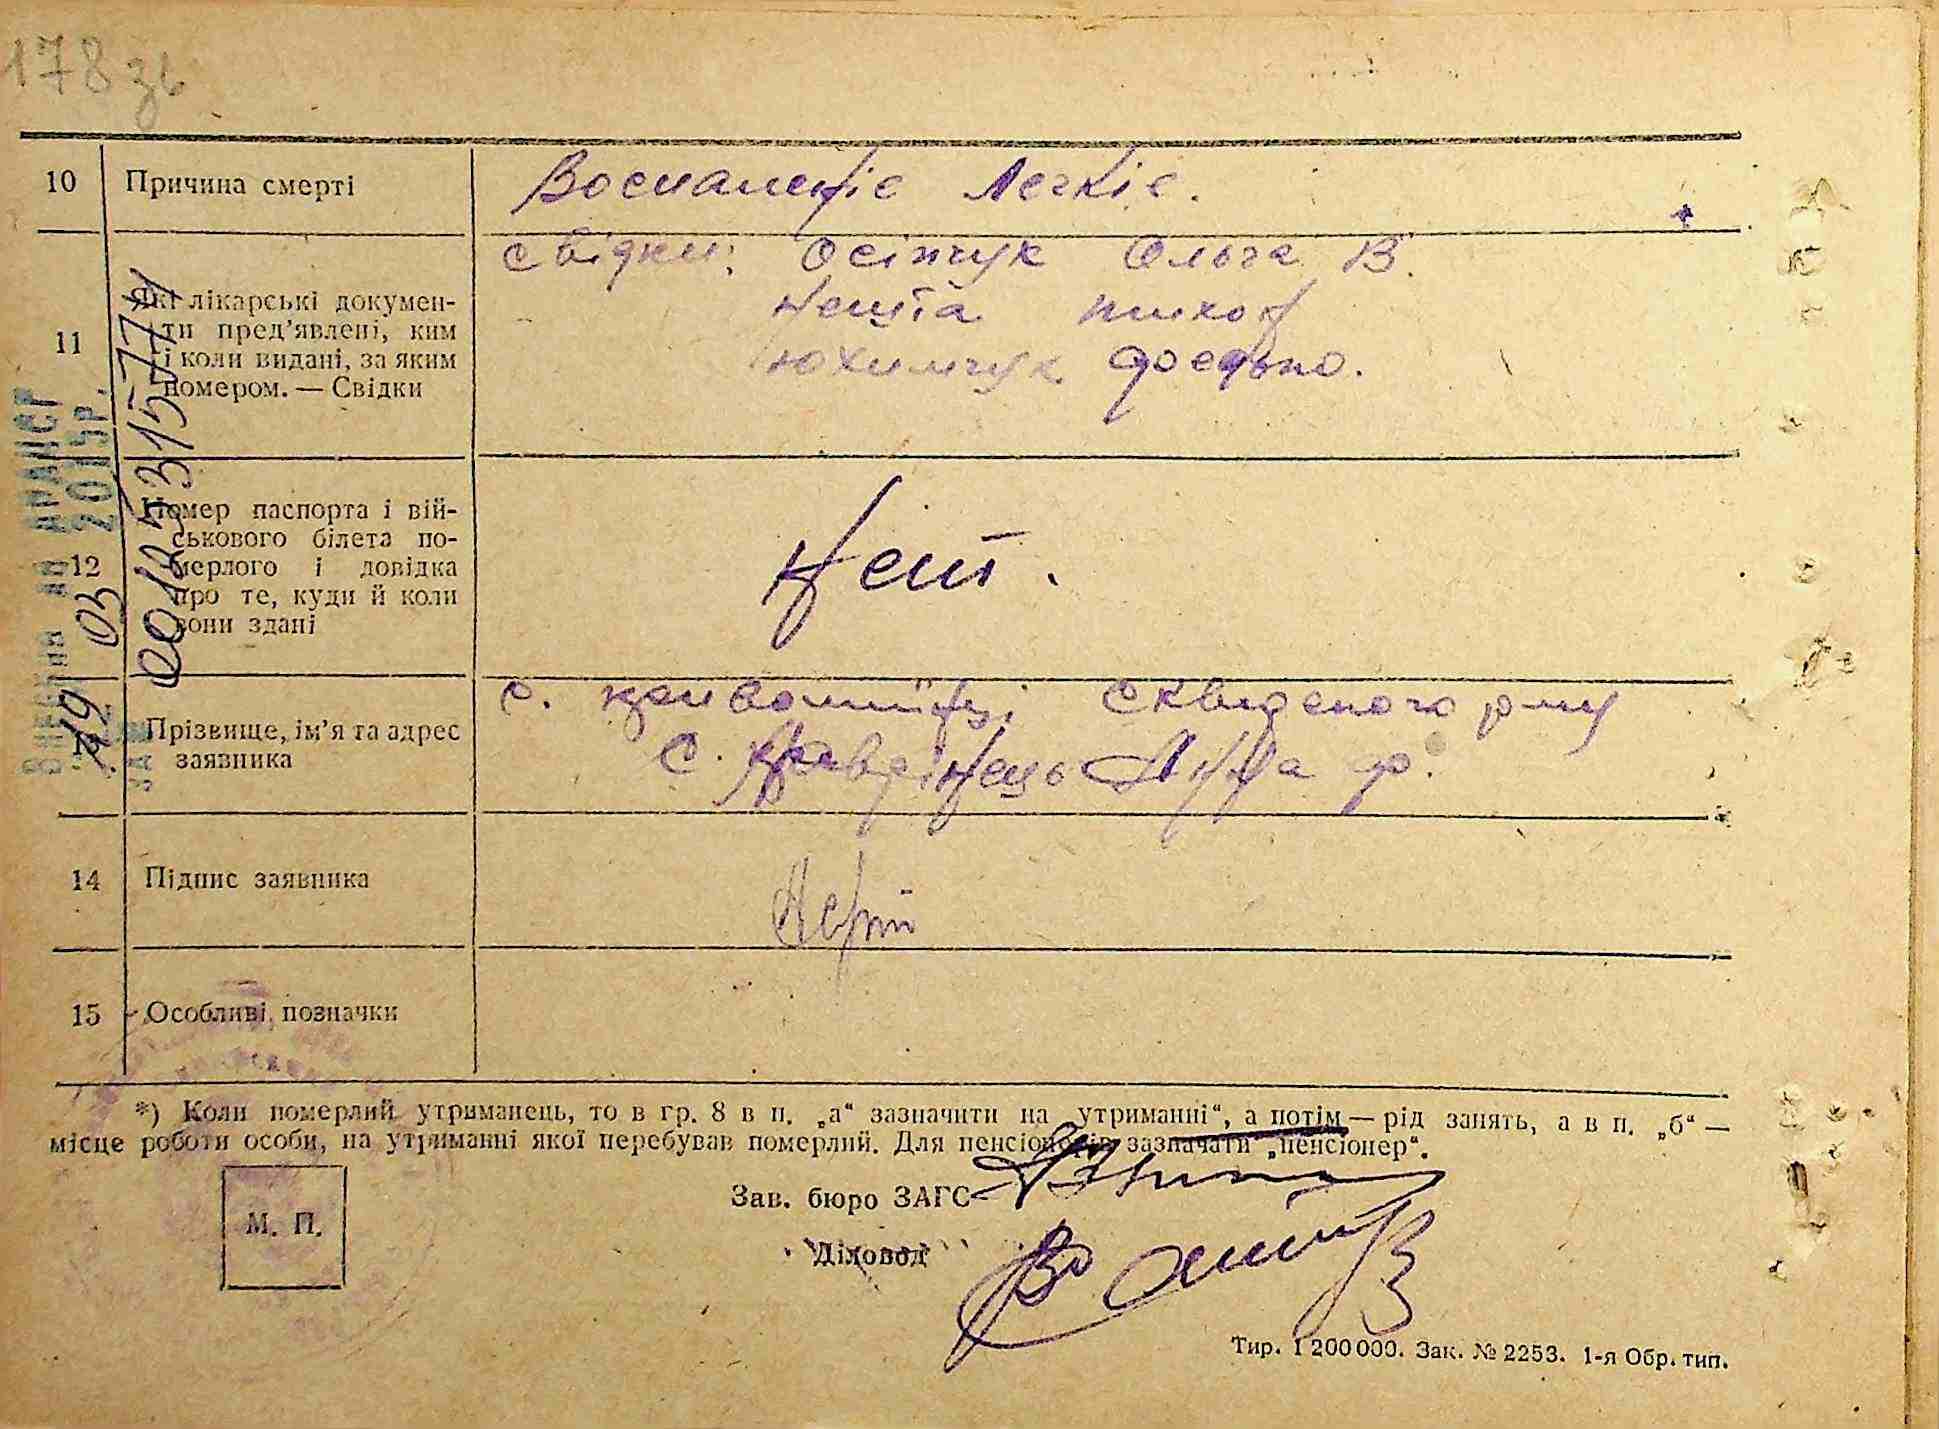 178 зв
10 Причина смерті Воспаленіе Легкіе.
11 Які лікарські докумен-
ти пред’явлені, ким
і коли видані, за яким
номером. — Свідки
свідки: Осіпчук Ольга В.
Юхимчук
12 Номер паспорта і вій-
ськового білета по-
мерлого і довідка
про те, куди й коли
вони здані
Нет.
Прізвище, ім’я та адрес
заявника
с. Сквирского р-ну
С. Анна Ф.
14 Підпис заявника
15 Особливі позначки
ДРАЦСГ
2015р.
19 03
00125315771
*) Коли померлий утриманець, то в гр. 8 в п. „а“ зазначити на „утриманні“, а потім — рід занять, а в п. „б“ —
місце роботи особи, на утриманні якої перебував померлий. Для пенсіонерів зазначати „пенсіонер“.
М. П.
Зав. бюро ЗАГС
Діловод
Тир. 1 200 000. Зак. № 2253. 1-я Обр. тип.